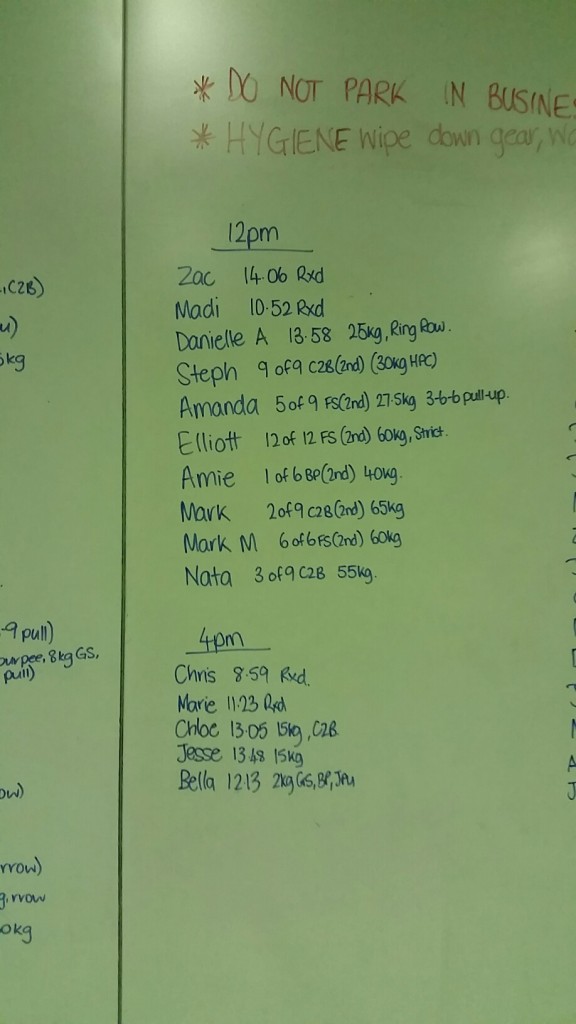 * DO NOT PARK IN BUSINES
* HYGIENE wipe down gear, wa
12pm
Zac 14.06 Rxd
Madi 10.52 Rxd
Danielle A 13.58 25kg, Ring Row.
Steph 9 of 9 C2B(2nd) (30kg HPC)
Amanda 5 of 9 FS(2nd) 27.5kg 3-6-6 pull-up.
Elliott 12 of 12 FS (2nd) 60kg, Strict.
Amie 1 of 6 BP(2nd) 40kg.
Mark 2 of 9 C2B(2nd) 65kg
Mark M 6 of 6 FS(2nd) 60kg
Nata 3 of 9 C2B 55kg.
4pm
Chris 8.59 Rxd.
Marie 11.23 Rxd
Chloe 13.05 15kg, C2B
Jesse 13.48 15kg
Bella 12.13 2kg GS, BP, JPu
, C2B)
u)
kg
-9 pull)
urpee, 8kg GS,
pull)
ow)
rrow)
g, rrow
0kg